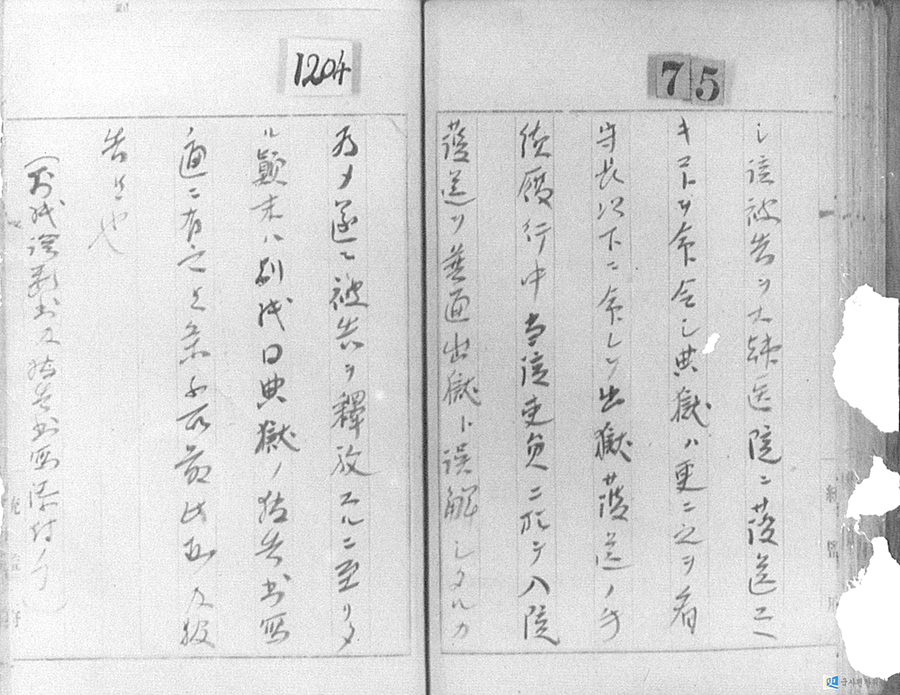 75
シ該被告ヲ大韓医院ニ護送スヘ
キコトヲ命令シ典獄ハ更ニ之ヲ看
守長以下ニ命シテ出獄護送ノ手
続履行中当該吏員ニ於テ入院
護送ヲ普通出獄ト誤解シタルカ
1204
為メ遂ニ被告ヲ釋放スルニ至リタ
ル顛末ハ別紙日典獄ノ報告書写
通ニ有之
告候也
(別紙診断書及報告書写添付ノ事)